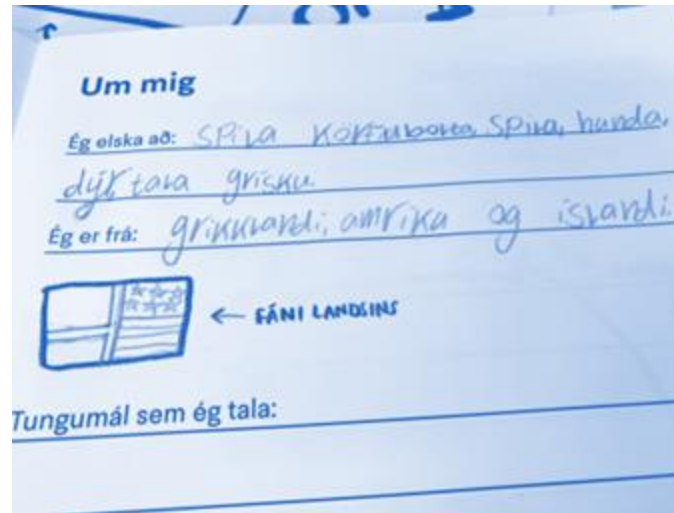 Um mig
Ég elska að: spila körfubolta, spila, hunda,
dýr, tala grísku.
Ég er frá: grikklandi, amríka og íslandi.
← FÁNI LANDSINS
Tungumál sem ég tala: